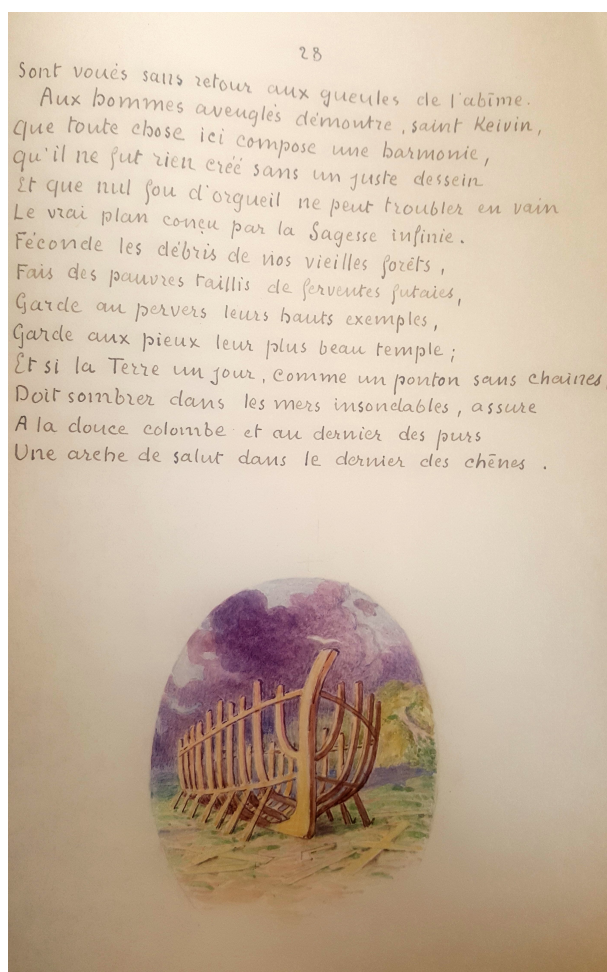 28
Sont voués sans retour aux gueules de l'abîme.
Aux hommes aveuglés démontre, saint Keivin,
Que toute chose ici compose une harmonie,
qu'il ne fut rien créé sans un juste dessein
Et que nul fou d'orgueil ne peut troubler en vain
Le vrai plan conçu par la Sagesse infinie.
Féconde les débris de nos vieilles forêts,
Fais des pauvres taillis de ferventes futaies,
Garde au pervers leurs hauts exemples,
Garde aux pieux leur plus beau temple ;
Et si la Terre un jour, comme un ponton sans chaînes,
Doit sombrer dans les mers insondables, assure
A la douce colombe et au dernier des purs
Une arche de salut dans le dernier des chênes.